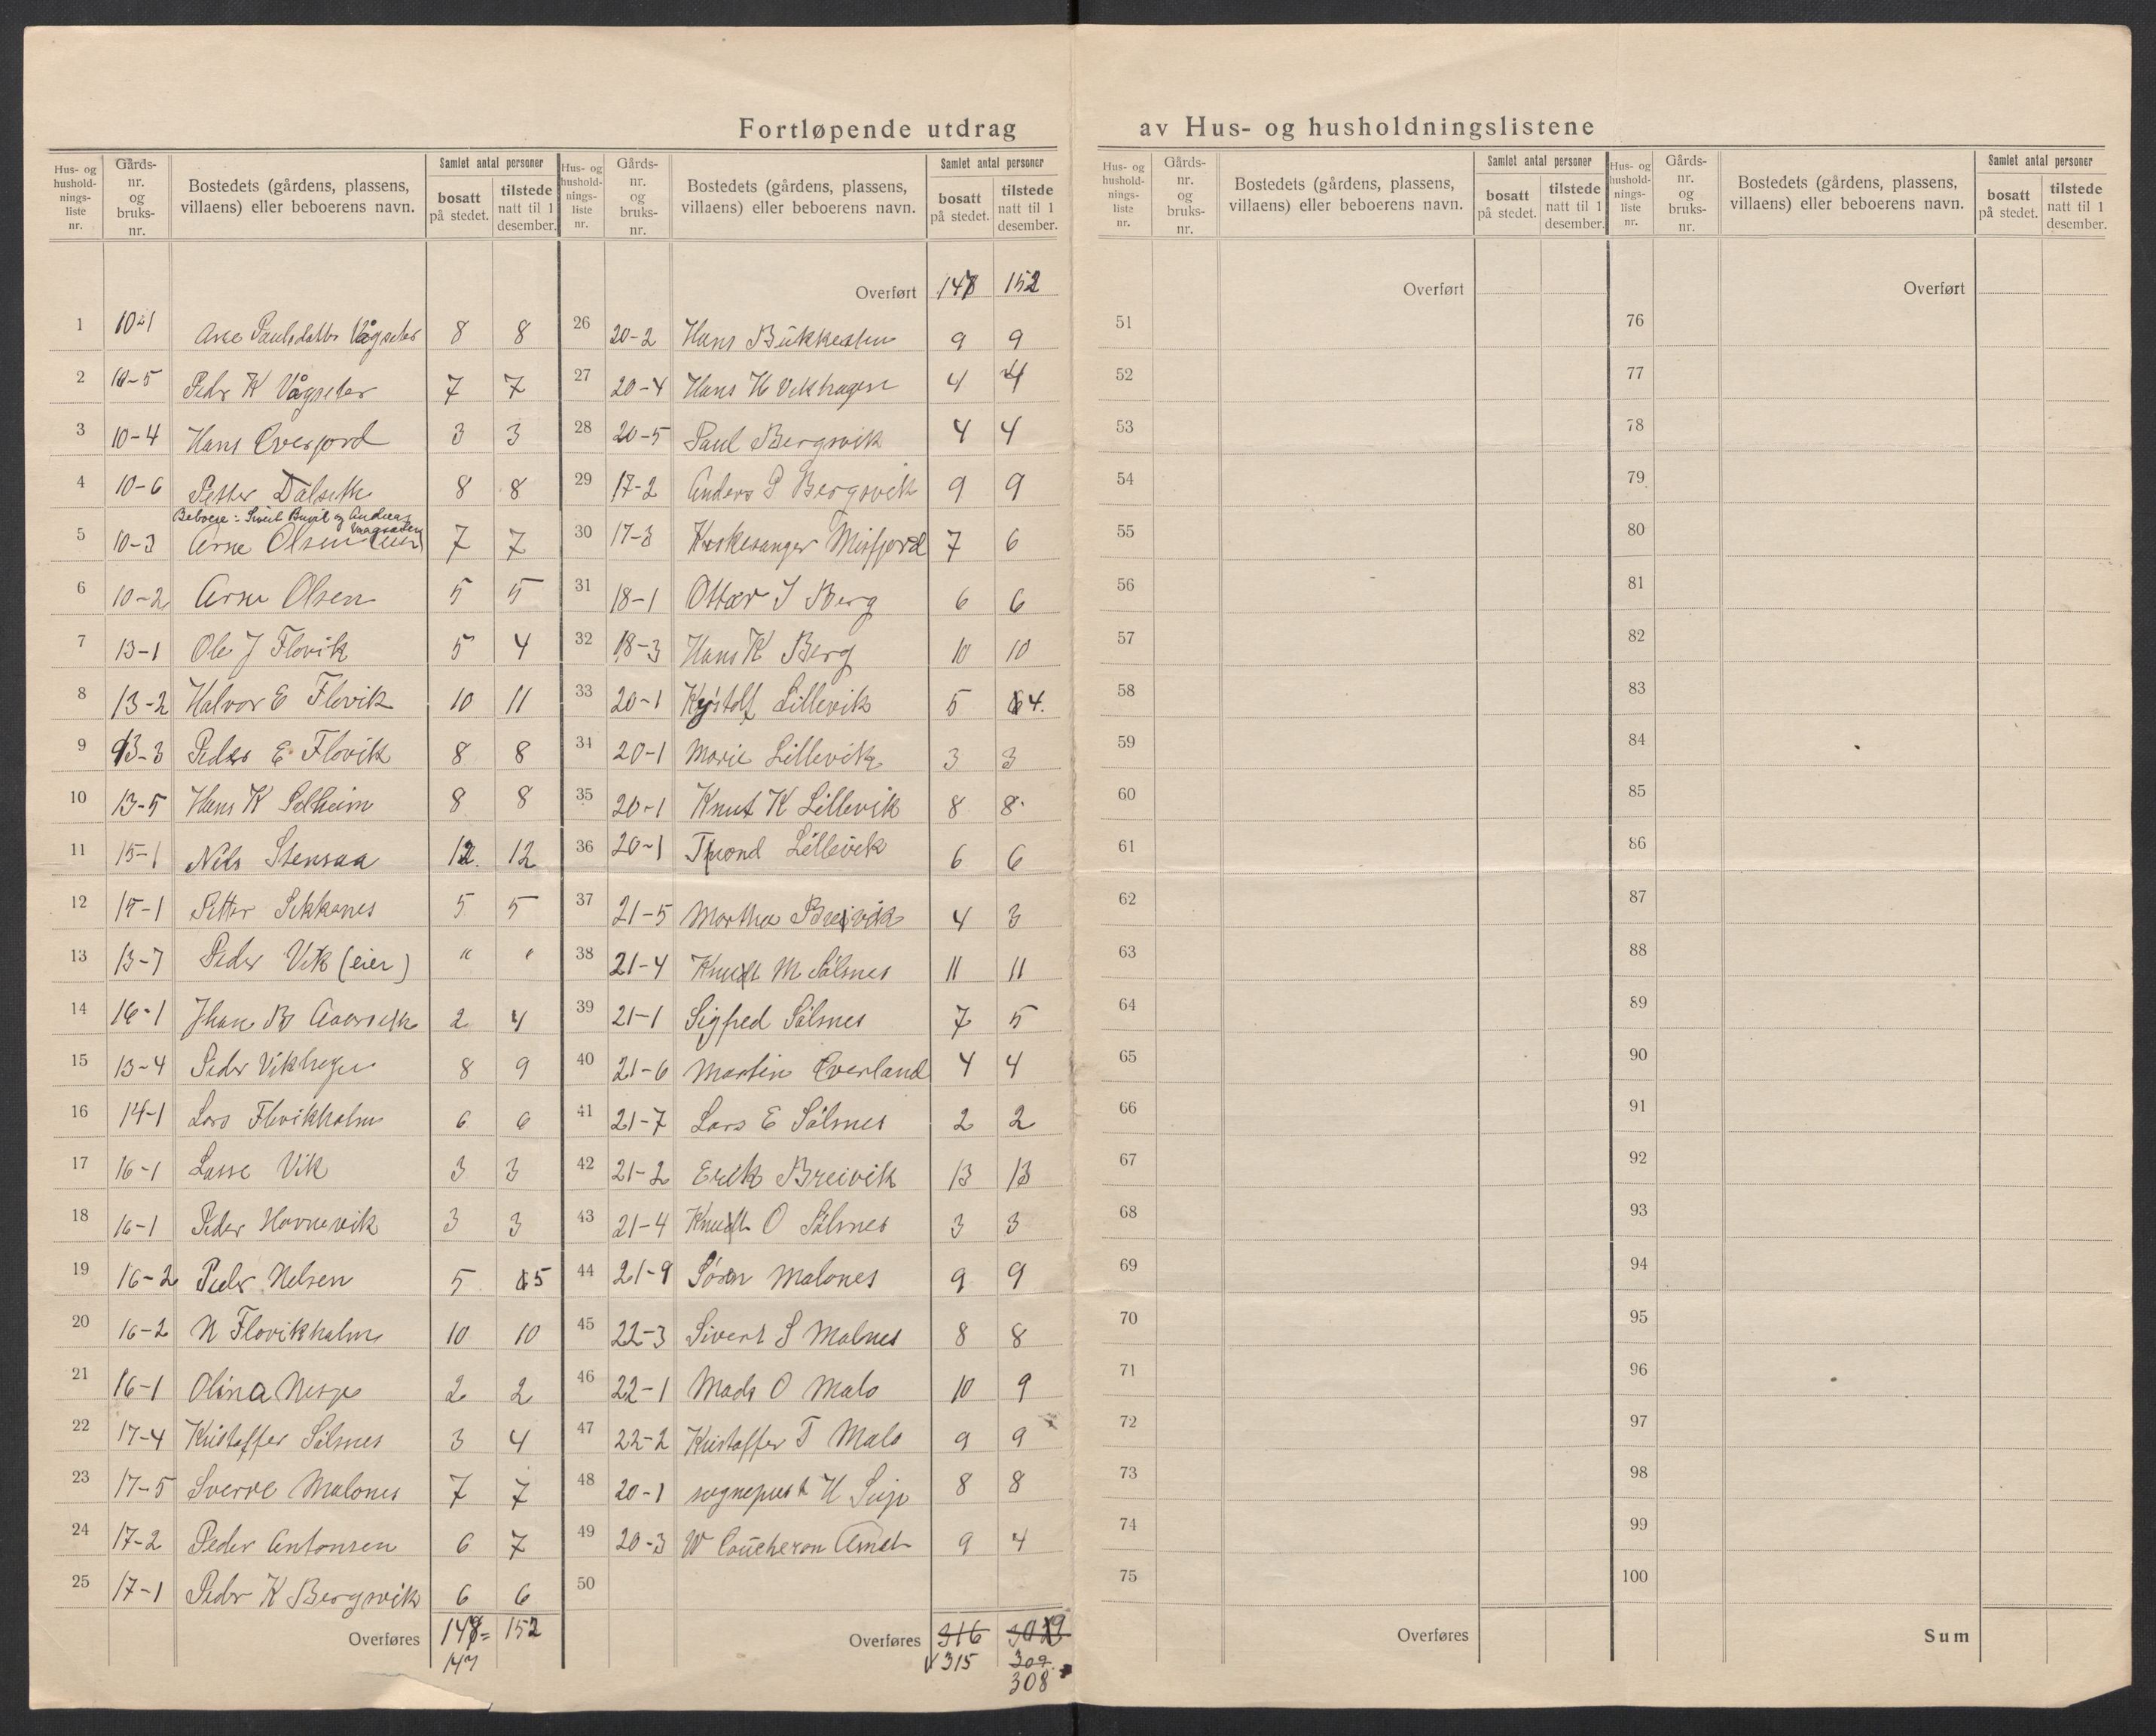 Fortløpende utdrag av Hus- og husholdningslistene
Hus- og hushold-nings-liste nr. | Gårds-nr. og bruks-nr. | Bostedets (gårdens, plassens, villaens) eller beboerens navn. | Samlet antal personer bosatt på stedet. | tilstede natt til 1 desember.
1 10-1 Paulsdatter Vågseter 8 8
2 10-5 Peder K Vågseter 7 7
3 10-4 Hans Oversjord 3 3
4 10-6 Petter Dalsette 8 8
Beboere: Sivert Buvik og Andreas Vaagsæter
5 10-3 Arne Olsen (eier) 7 7
6 10-2 Arne Olsen 5 5
7 13-1 Ole J Flovik 5 4
8 13-2 Halvor E Flovik 10 11
9 13-3 Peder E Flovik 8 8
10 13-5 Hans K Solheim 8 8
11 15-1 Nils Stensaa 12. 12
12 15-1 Petter Sekkenes 5 5
13 13-7 Peder Vik (eier) " "
14 16-1 Johan 2 4
15 13-4 Peder Vikhagen 8 9
16 14-1 Lars Flovikholm 6 6
17 16-1 Lasse Vik 3 3
18 16-1 Peder Havnevik 3 3
19 16-2 Peder Nelsen 5 5
20 16-2 N Flovikholm 10 10
21 16-1 Olina Nesje 2 2
22 17-4 Kristoffer Sølsnes 3 4
23 17-5 Sverre Malones 7 7
24 17-2 Peder Antonsen 6 7
25 17-1 Peder K Bergsvik 6 6
Overføres 147 = 152
147
Hus- og hushold-nings-liste nr. | Gårds-nr. og bruks-nr. | Bostedets (gårdens, plassens, villaens) eller beboerens navn. | Samlet antal personer bosatt på stedet. | tilstede natt til 1 desember.
Overført 147 152
26 20-2 Hans Bukkesten 9 9
27 20-4 Hans H Vikhagen 4 4
28 20-5 Paul Bergsvik 4 4
29 17-2 Anders P Bergsvik 9 9
30 17-3 Misfjord 7 6
31 18-1 Ottar J Berg 6 6
32 18-3 Hans K Berg 10 10
33 20-1 Lillevik 5 4.
34 20-1 Marie Lillevik 3 3
35 20-1 Knut K Lillevik 8 8
36 20-1 Trond Lillevik 6 6
37 21-5 Martha Breivik 4 3
38 21-4 Knut M Sølsnes 11 11
39 21-1 Sigfred Sølsnes 7 5
40 21-6 Martin Overland 4 4
41 21-7 Lars E Sølsnes 2 2
42 21-2 Erik Breivik 13 13
43 21-4 Knut O Sølsnes 3 3
44 21-9 Søren Malones 9 9
45 22-3 Sivert S Malnes 8 8
46 22-1 Mads O Malo 10 9
47 22-2 Kristoffer T Malo 9 9
48 20-1 sogneprest H 8 8
49 20-3 W Coucheron Amdt 9 4
50
Overføres 316
315 309
308
Hus- og hushold-nings-liste nr. | Gårds-nr. og bruks-nr. | Bostedets (gårdens, plassens, villaens) eller beboerens navn. | Samlet antal personer bosatt på stedet. | tilstede natt til 1 desember.
Overført
51
52
53
54
55
56
57
58
59
60
61
62
63
64
65
66
67
68
69
70
71
72
73
74
75
Overføres
Hus- og hushold-nings-liste nr. | Gårds-nr. og bruks-nr. | Bostedets (gårdens, plassens, villaens) eller beboerens navn. | Samlet antal personer bosatt på stedet. | tilstede natt til 1 desember.
Overført
76
77
78
79
80
81
82
83
84
85
86
87
88
89
90
91
92
93
94
95
96
97
98
99
100
Sum